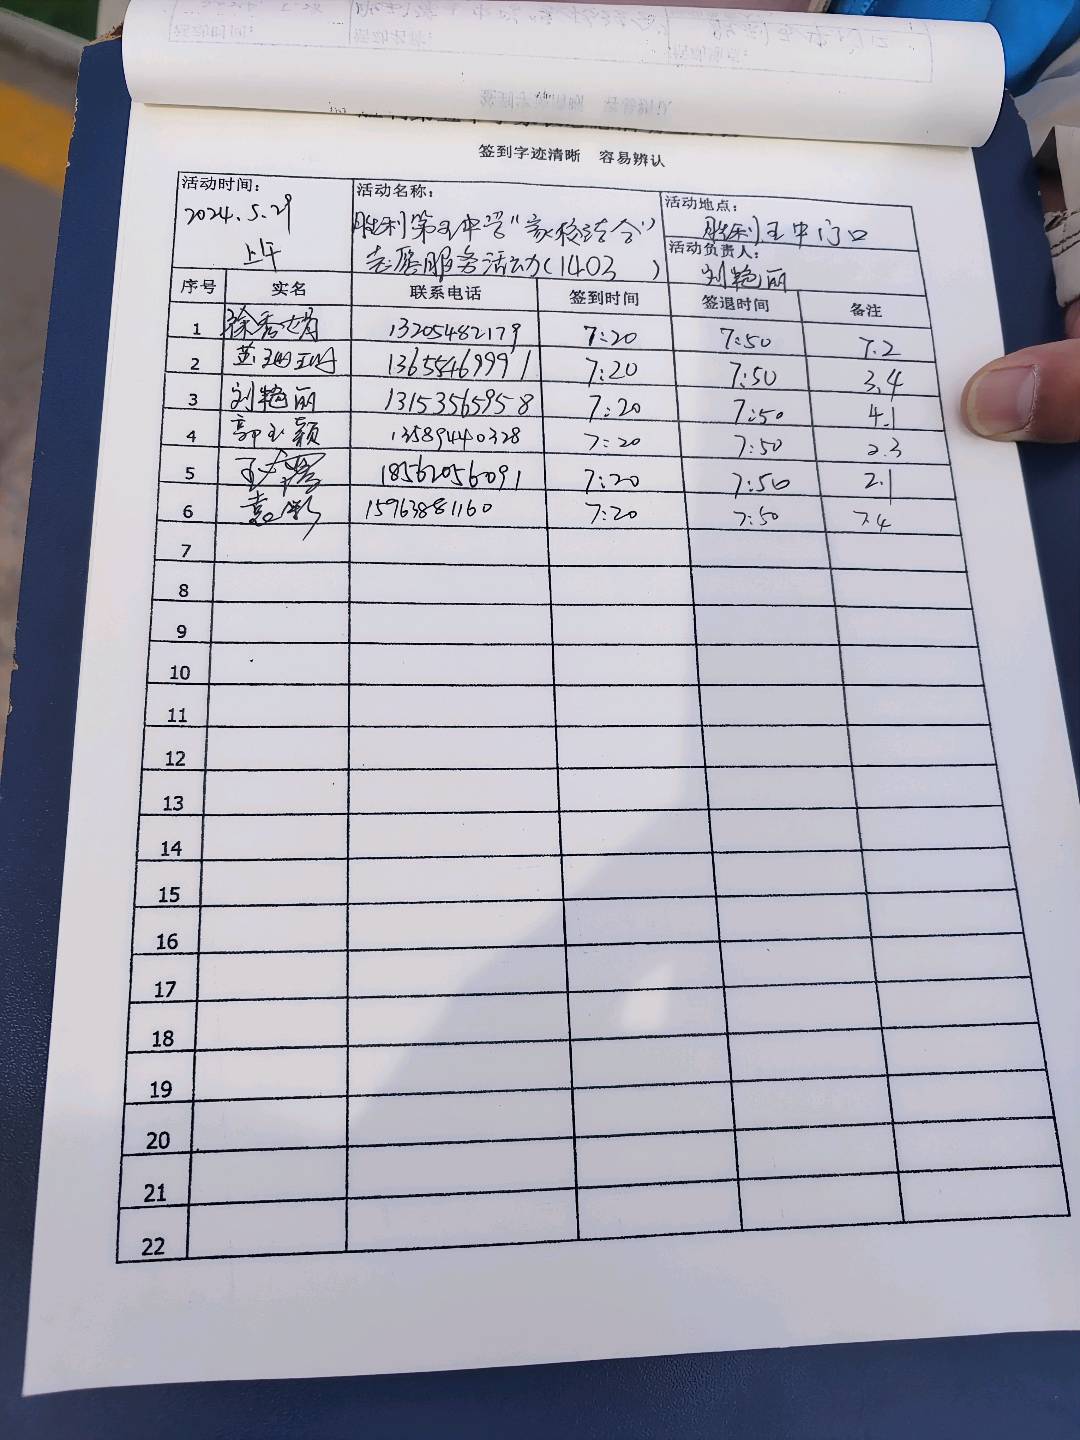 签到字迹清晰 容易辨认
活动时间: 活动名称: 活动地点:
2024.5.29 上午
胜利第五中学“家校结合”
志愿服务活动(1403 )
胜利五中门口
活动负责人:
刘艳丽
序号 实名 联系电话 签到时间 签退时间 备注
1 徐秀娟 13205482179 7:20 7:50 7.2
2 13655469991 7:20 7:50 3.4
3 刘艳丽 13153565958 7:20 7:50 4.1
4 郭玉颖 13589440328 7:20 7:50 2.3
5 18562056091 7:20 7:50 2.1
6 袁彬 15963881160 7:20 7:50 7.4
7
8
9
10
11
12
13
14
15
16
17
18
19
20
21
22